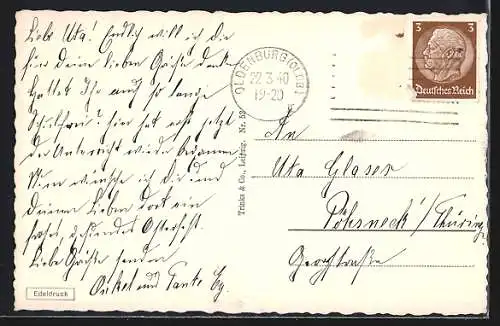 Liebe Uta! Endlich will ich dir
für deine lieben Grüße danken.
Hattet Ihr auch so lange
Schulfrei? Hier hat erst jetzt
der Unterricht wieder begonnen.
Nun wünsche ich dir und
deinen Lieben dort ein
frohes, Osterfest.
Liebe Grüße senden
Onkel und Tante
Edeldruck
Trinks & Co., Leipzig. Nr. 52
OLDENBURG (OLDB)
22.3.40
19-20
3 3
Deutsches Reich
An
Uta Glaser
Pößneck / Thüring.
Georgstraße